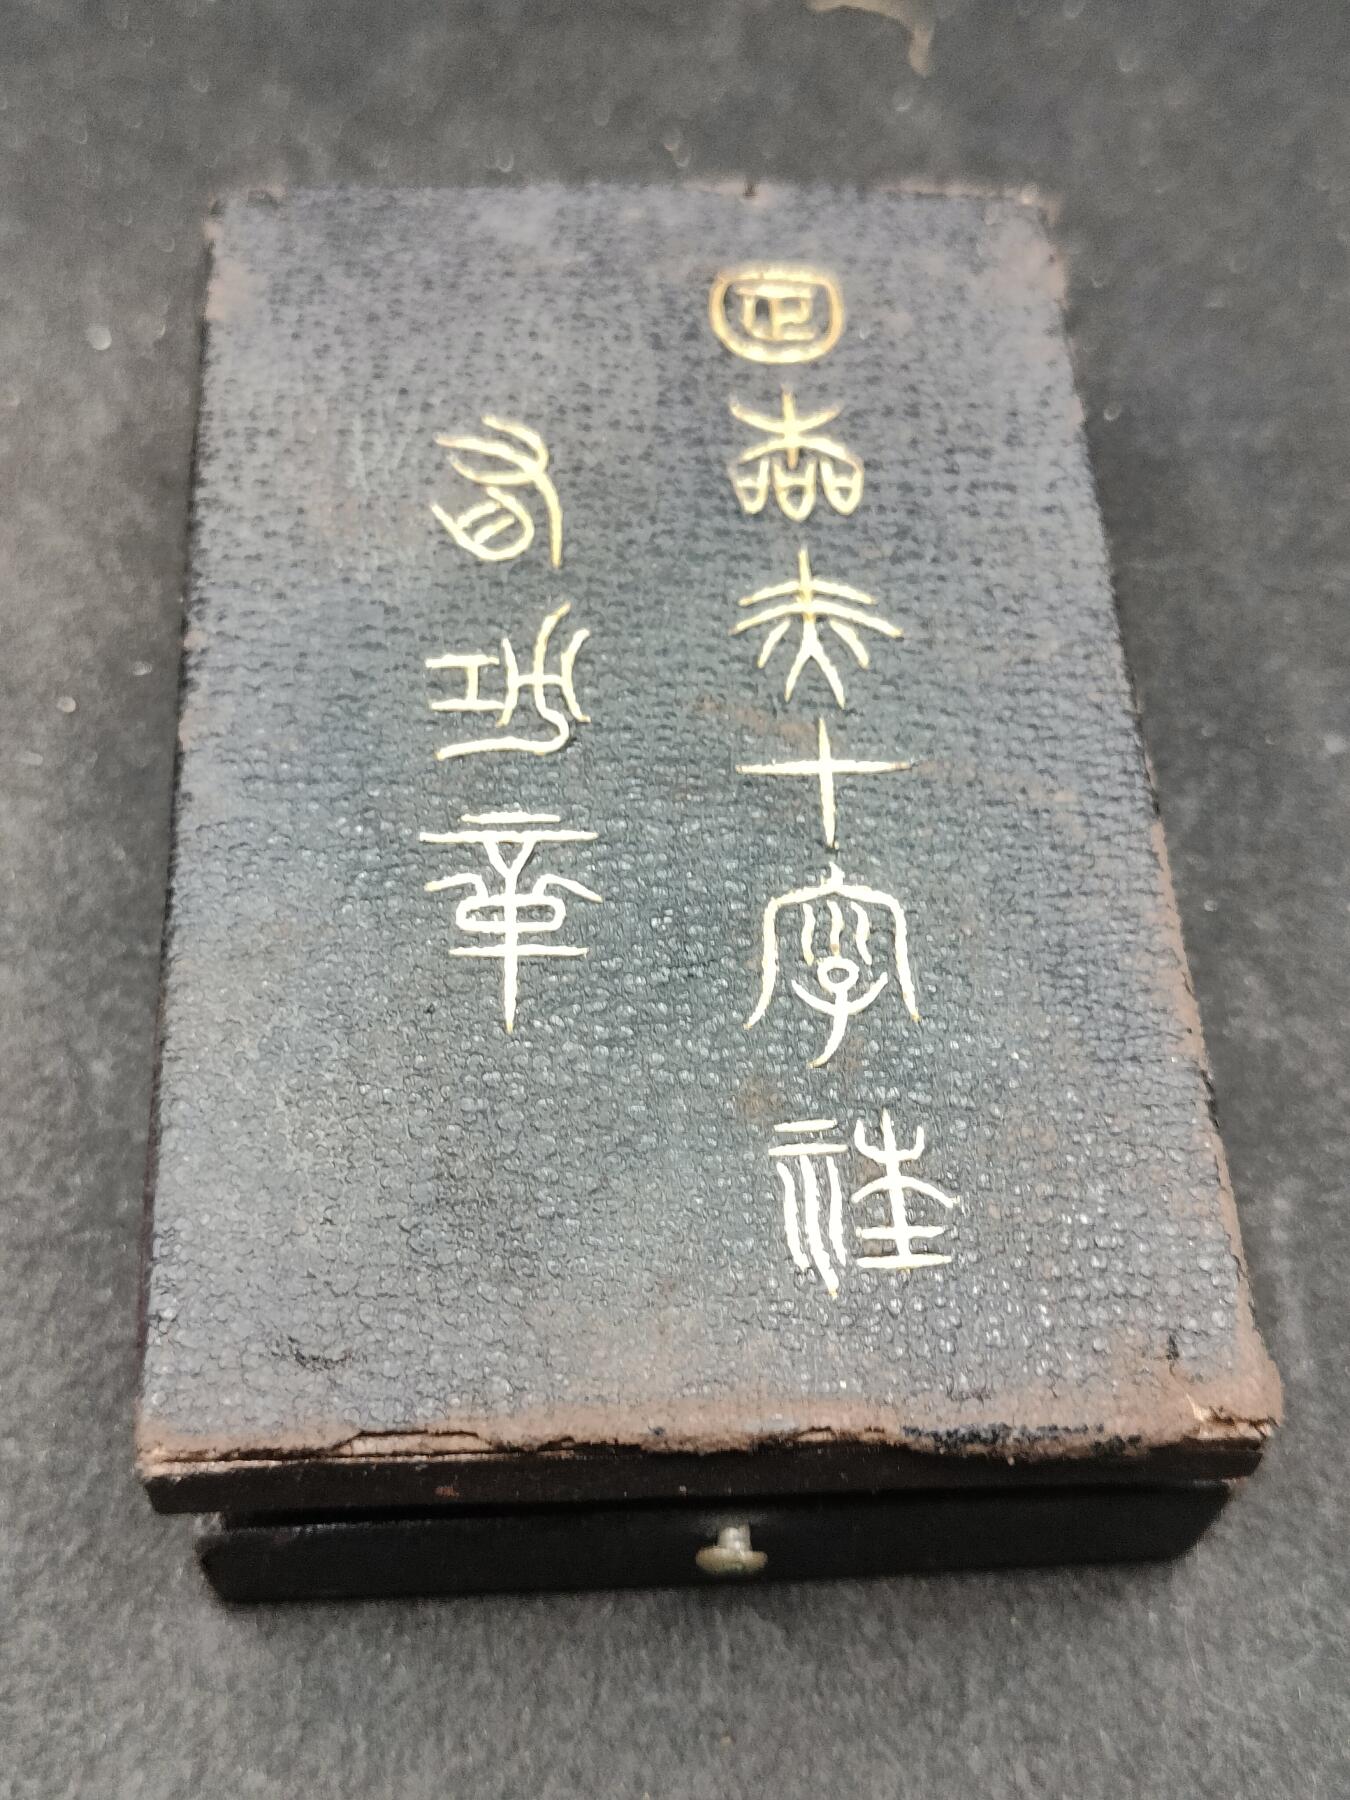 日本赤十字社
有功章